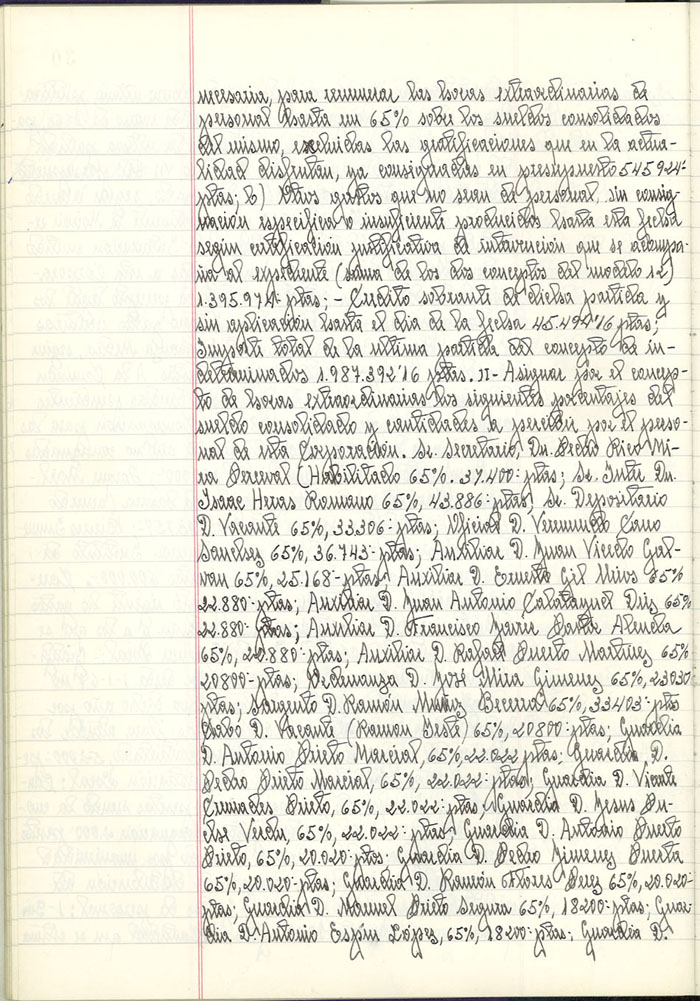 necesaria, para remunerar las horas extraordinarias de
personal hasta un 65% sobre los sueldos consolidados
del mismo, excluidas las gratificaciones que en la actua-
lidad disfrutan, ya consignadas en presupuesto 545.924'-
ptas; b) Otros gastos que no sean de personal, sin consig-
nación específica o insuficiente producidos hasta esta fecha
según certificación justificativa de intervención que se acompa-
ña al expediente (suma de los dos conceptos del modelo 12)
1.395.974'- ptas; - Credito sobrante de dicha partida y
sin aplicación hasta el dia de la fecha 45.494'16 ptas;
Importe total de la ultima partida del concepto de in-
determinados 1.987.392'16 ptas. II- Asignar por el concep-
to de horas extraordinarias los siguientes porcentajes del
sueldo consolidado y cantidades a percibir por el perso-
nal de esta Corporación. Sr. Secretario, Dn. Pedro Rico Mi-
ra Perceval (Habilitado 65%. 37.400'- ptas; Sr. Intr Dn.
Isaac Heras Romano 65%, 43.886'- ptas; Sr. Depositario
D. Vacante 65%, 33306'- ptas; Oficial D. Verumundo Cano
Sanchez 65%, 36.743'- ptas; Auxiliar D. Juan Vicedo Gal-
van 65%, 25.168'- ptas; Auxiliar D. Ernesto Gil 65%
22.880'- ptas; Auxiliar D. Juan Antonio Calatayud Diez 65%
22.880 ptas; Auxiliar D. Francisco Javier Alenda
65%, 20.880'- ptas; Auxiliar D. Rafael Puerto Martinez 65%
20800'- ptas; Ordenanza D. José Mira Gimenez 65%, 23030
ptas; Sargento D. Ramón Muñoz Becerra 65%, 33403'- ptas
Cabo D. Vacante (Ramon Jesté) 65%, 20800'- ptas; Guardia
D. Antonio Prieto Marcial, 65%, 22.022 ptas; Guardia, D.
Pedro Prieto Marcial, 65%, 22.022'- ptas; Guardia D. Vicente
Prieto, 65%, 22.022'- ptas; Guardia D. Jesus Pu-
che Verdu, 65%, 22.022'- ptas Guardia D. Antonio Puerto
Prieto, 65%, 20.020'- ptas. Guardia D. Pedro Jimenez Puerta
65%, 20.020'- ptas; Guardia D. Ramón Flores Perez 65%, 20.020'-
ptas; Guardia D. Manuel Prieto Segura 65%, 18200'- ptas; Guar-
dia D. Antonio Espin López, 65%, 18200'- ptas; Guardia D.